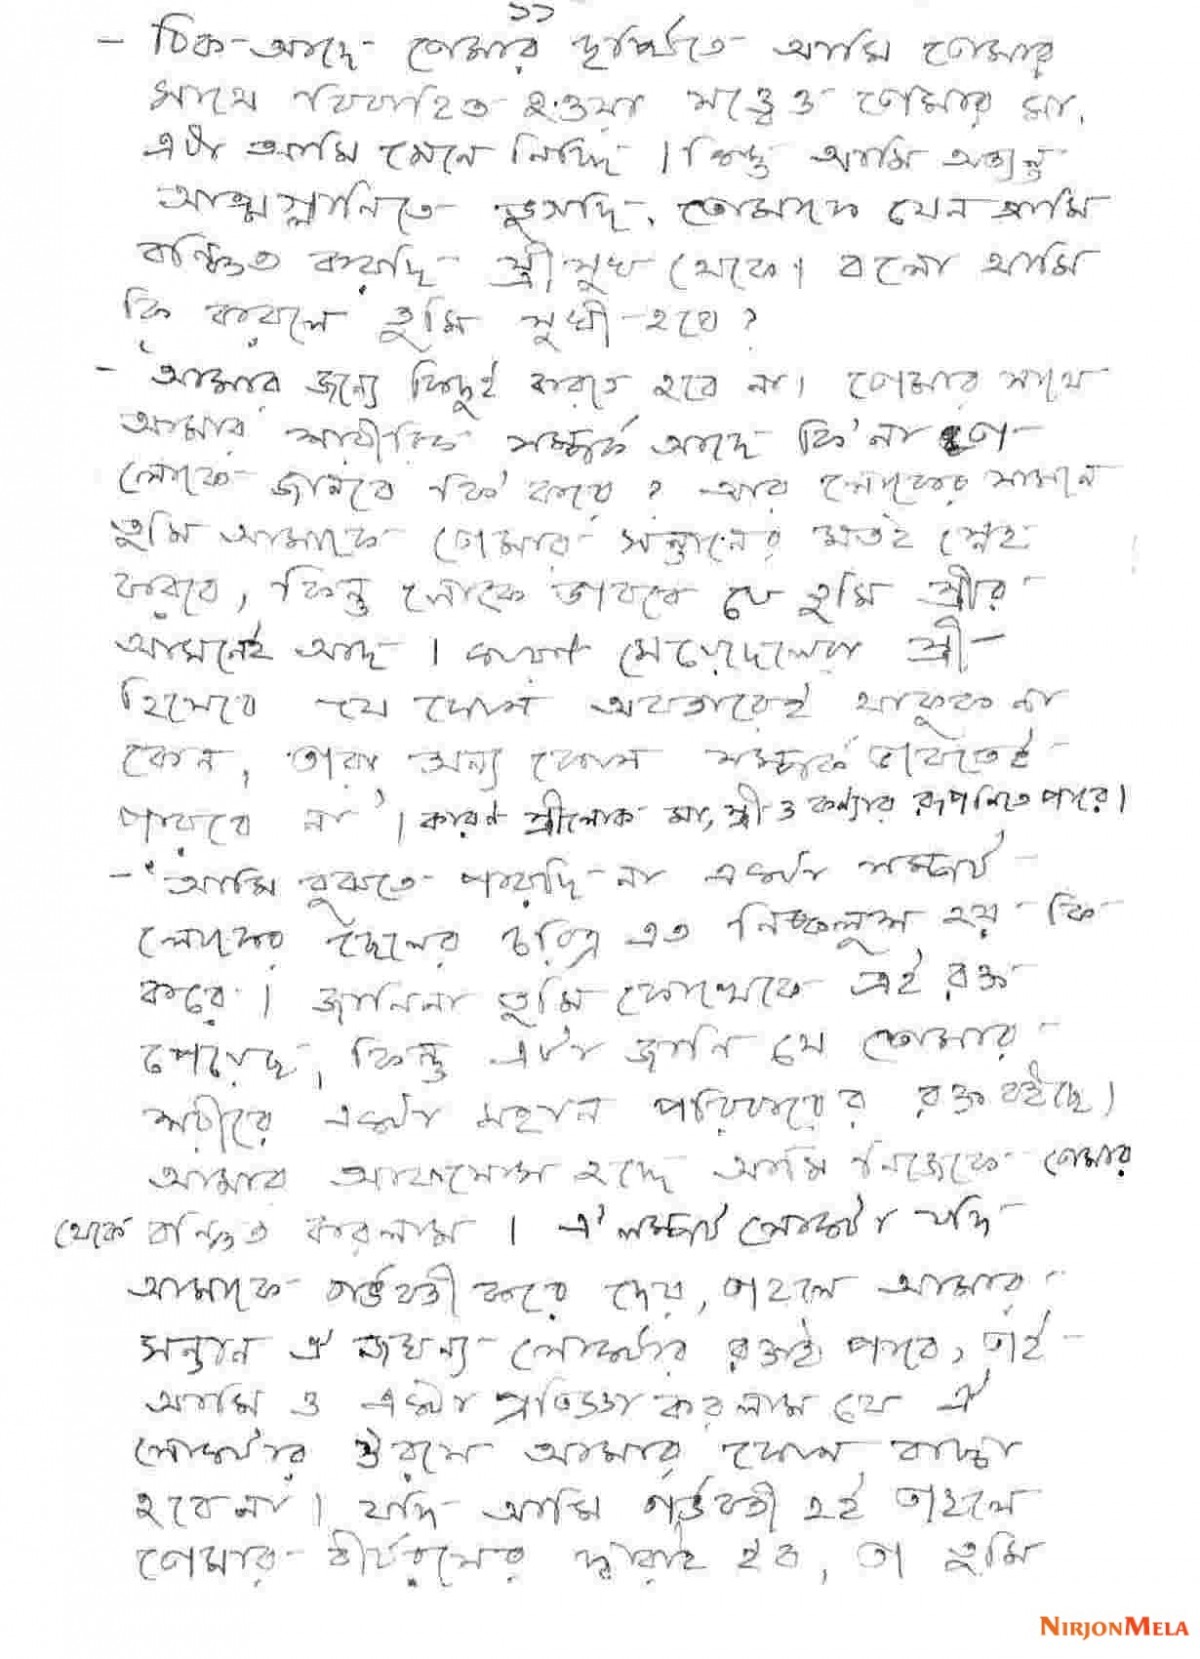 ১১
- ঠিক আছে তোমার দৃষ্টিতে আমি তোমার
সাথে বিবাহিত হওয়া সত্ত্বেও তোমার মা,
এটা আমি মেনে নিচ্ছি । কিন্তু আমি অত্যন্ত
আত্মগ্লানিতে ভুগছি, তোমাকে যেন আমি
বঞ্চিত করেছি স্ত্রী সুখ থেকে। বলো আমি
কি করলে তুমি সুখী হবে ?
- 'আমার জন্যে কিছুই করতে হবে না। তোমার সাথে
আমার শারীরিক সম্পর্ক আছে কি না তা
লোকে জানবে কি করে ? আর লোকের সামনে
তুমি আমাকে তোমার সন্তানের মতই স্নেহ
করবে, কিন্তু লোকে ভাববে যে তুমি স্ত্রীর
আসনেই আছ । কারণ মেয়েছেলেরা স্ত্রী
হিসেবে যে কোন অবতারেই থাকুক না
কেন, তারা অন্য কোন সম্পর্ক ভাবতেই
পারবে না' । কারণ স্ত্রীলোক মা, স্ত্রী ও কন্যার রূপ নিতে পারে।
- 'আমি বুঝতে পারছি না একটা লম্পট
লোকের ছেলের চরিত্র এত নিষ্কলুষ হয় কি
করে । জানিনা তুমি কোত্থেকে এই রক্ত
পেয়েছ, কিন্তু এটা জানি যে তোমার
শরীরে একটা মহান পরিবারের রক্ত বইছে।
আমার আফসোস হচ্ছে আমি নিজেকে তোমার
থেকে বঞ্চিত করলাম । ঐ লম্পট লোকটা যদি
আমাকে গর্ভবতী করে দেয়, তাহলে আমার
সন্তান ঐ জঘন্য লোকটার রক্তই পাবে, তাই
আমি ও একটা প্রতিজ্ঞা করলাম যে ঐ
লোকটার ঔরসে আমার কোন বাচ্চা
হবেনা । যদি আমি গর্ভবতী হই তাহলে
তোমার বীর্যরসের দ্বারাই হব, তা তুমি
NIRJONMELA